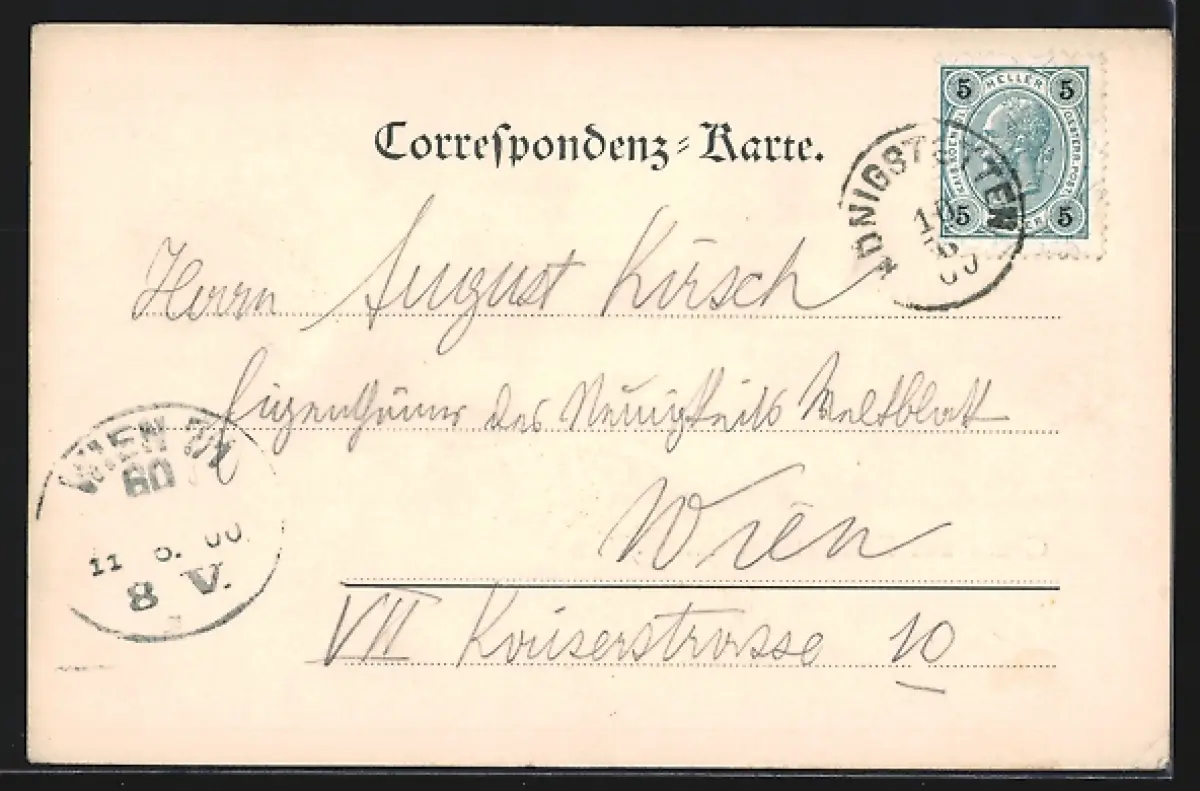 Correspondenz-Karte.
5 HELLER 5
5 5
KÖNIGSTETTEN
10 6 00
Herrn August Kirsch
Eigenthümer des Neuigkeits Weltblatt
Wien
VII Kaiserstrasse 10
WIEN
60
11 6. 00
8 V.